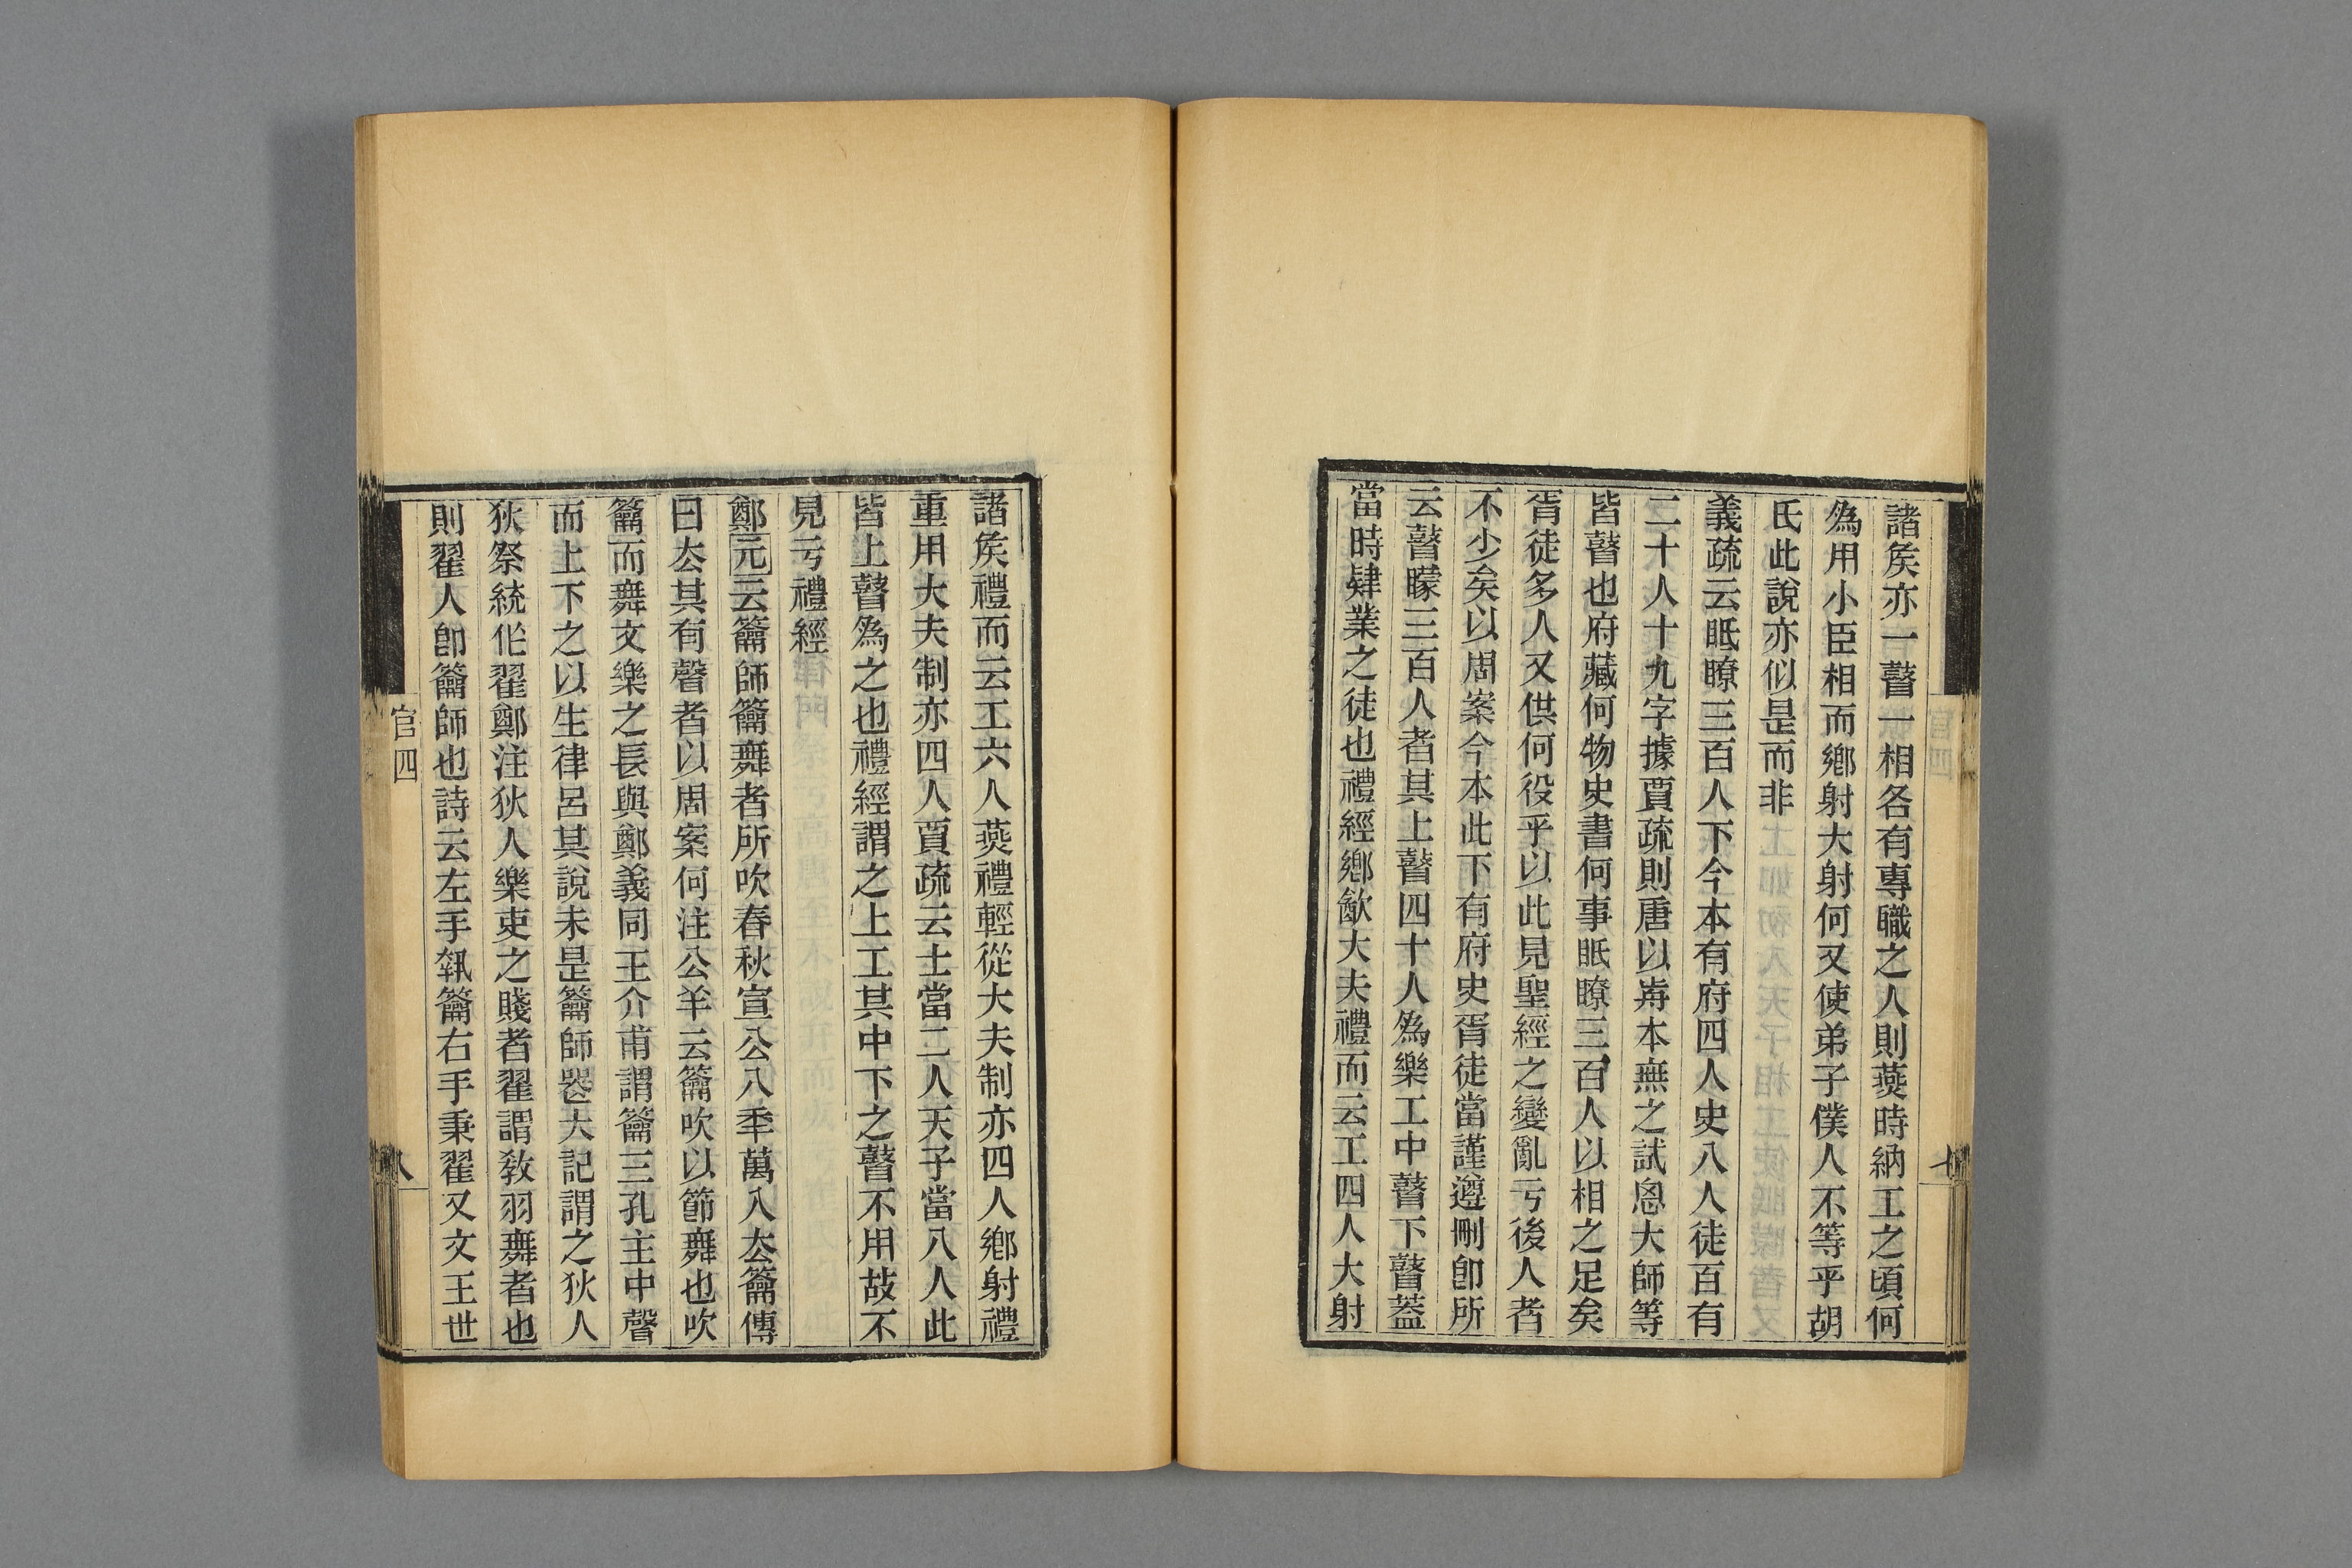 諸矦亦一瞽一相各有專職之人則燕時納工之頃何
爲用小臣相而鄉射大射何又使弟子僕人不等乎胡
氏此說亦似是而非
義疏云眂瞭三百人下今本有府四人史八人徒百有
二十人十九字據賈疏則唐以歬本無之試恖大師等
皆瞽也府藏何物史書何事眂瞭三百人以相之足矣
胥徒多人又供何役乎以此見聖經之變亂亏後人者
不少矣以周案今本此下有府史胥徒當謹遵刪卽所
云瞽矇三百人者其上瞽四十人爲樂工中瞽下瞽蓋
當時肄業之徒也禮經鄉飮大夫禮而云工四人大射
諸矦禮而云工六人燕禮輕從大夫制亦四人鄉射禮
重用大夫制亦四人賈疏云士當二人天子當八人此
皆上瞽爲之也禮經謂之上工其中下之瞽不用故不
見亏禮經
鄭元云籥師籥舞者所吹春秋宣公八秊萬入厺籥傳
曰厺其有聲者以周案何注公羊云籥吹以節舞也吹
籥而舞文樂之長與鄭義同王介甫謂籥三孔主中聲
而上下之以生律呂其說未是籥師喪大記謂之狄人
狄祭統作翟鄭注狄人樂吏之賤者翟謂敎羽舞者也
則翟人卽籥師也詩云左手執籥右手秉翟又文王世
官四
八
七